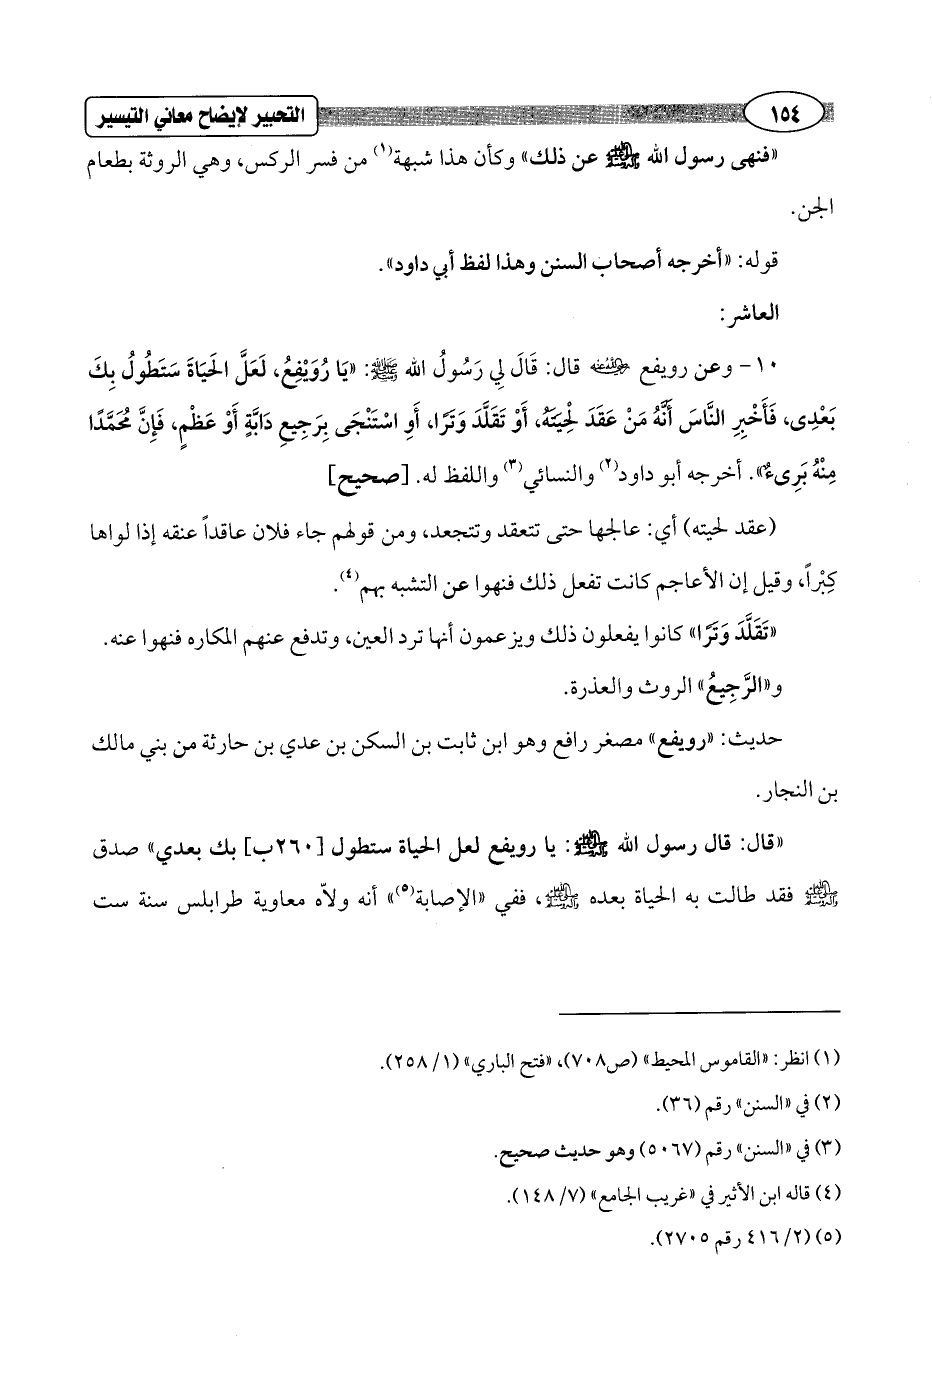 ١٥٤ التحبير لإيضاح معاني التيسير
«فنهى رسول الله ﷺ عن ذلك» وكأن هذا شبهة(١) من فسر الركس، وهي الروثة بطعام
الجن.
قوله: «أخرجه أصحاب السنن وهذا لفظ أبي داود».
العاشر:
١٠- وعن رويفع رضي الله عنه قال: قَالَ لِي رَسُولُ الله ﷺ: «يَا رُوَيْفِعُ، لَعَلَّ الحَيَاةَ سَتَطُولُ بِكَ
بَعْدِى، فَأَخْبِرِ النَّاسَ أَنَّهُ مَنْ عَقَدَ لِحْيَتَهُ، أَوْ تَقَلَّدَ وَتَرًا، أَوِ اسْتَنْجَى بِرَجِيعِ دَابَّةٍ أَوْ عَظْمٍ، فَإِنَّ مُحَمَّدًا
مِنْهُ بَرِىءٌ». أخرجه أبو داود(٢) والنسائي(٣) واللفظ له. [صحيح]
(عقد لحيته) أي: عالجها حتى تتعقد وتتجعد، ومن قولهم جاء فلان عاقداً عنقه إذا لواها
كِبْراً، وقيل إن الأعاجم كانت تفعل ذلك فنهوا عن التشبه بهم(٤).
«تَقَلَّدَ وَتَرًا» كانوا يفعلون ذلك ويزعمون أنها ترد العين، وتدفع عنهم المكاره فنهوا عنه.
و«الرَّجِيعُ» الروث والعذرة.
حديث: «رويفع» مصغر رافع وهو ابن ثابت بن السكن بن عدي بن حارثة من بني مالك
بن النجار.
«قال: قال رسول الله ﷺ: يا رويفع لعل الحياة ستطول [٢٦٠ب] بك بعدي» صدق
ﷺ فقد طالت به الحياة بعده ﷺ، ففي «الإصابة(٥)» أنه ولاّه معاوية طرابلس سنة ست
(١) انظر: «القاموس المحيط» (ص٧٠٨)، «فتح الباري» (١/ ٢٥٨).
(٢) في «السنن» رقم (٣٦).
(٣) في «السنن» رقم (٥٠٦٧) وهو حديث صحيح.
(٤) قاله ابن الأثير في «غريب الجامع» (٧/ ١٤٨).
(٥) (٢/ ٤١٦ رقم ٢٧٠٥).